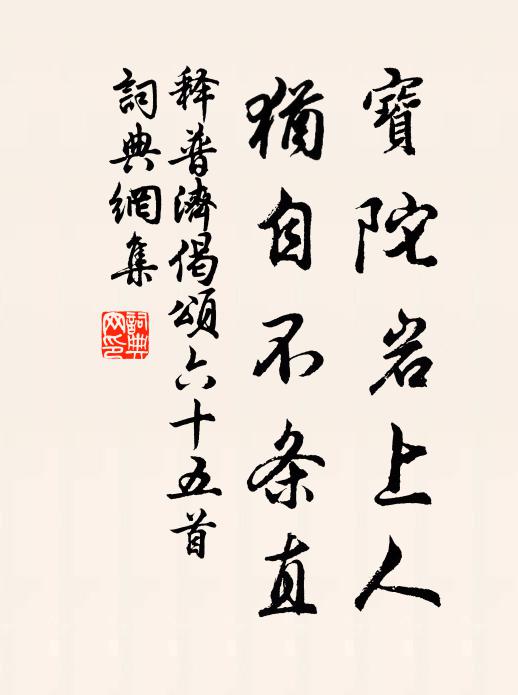 寶陀岩上人
猶自不条直
释普濟偈頌六十五首
詞典網集
詞典网印